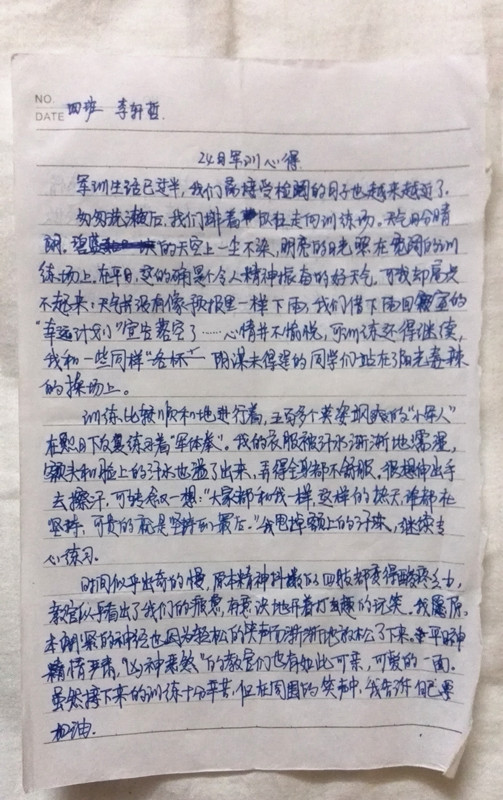 NO.
DATE 四班 李轩哲
24日军训心得
军训生活已过半,我们离接受检阅的日子也越来越近了。
匆匆洗漱后,我们排着队伍走向训练场。天气十分晴
朗。碧蓝的天空上一尘不染,明亮的日光照在宽阔的训
练场上。在平日,这的确是个令人精神振奋的好天气,可我却高兴
不起来:天气并没有像预报里一样下雨,我们借下雨回寝室的
“幸运计划”宣告落空了……心情并不愉悦,可训练还得继续,
我和一些同样 阴谋未得逞的同学们站在了阳光毒辣
的操场上。
训练比较顺利地进行着,五百多个英姿飒爽的“小军人”
在烈日下反复练习着“军体拳”。我的衣服被汗水渐渐地濡湿,
额头和脸上的汗水也溢了出来,弄得全身都不舒服。很想伸出手
去擦汗,可转念一想:“大家都和我一样,这样的热天,谁都在
坚持,可贵的就是坚持到最后。”我甩掉额上的汗珠,继续专
心练习。
时间似乎出奇的慢,原本精神抖擞的四肢都变得酸疼
教官似乎看出了我们的疲惫,有意识地开着打趣的玩笑。我
本绷紧的神经也因为轻松的笑声而渐渐地放松了下来。平日神
情严肃,“凶神恶煞”的教官们也有如此可亲,可爱的一面。
虽然接下来的训练十分辛苦,但在周围的笑声中,我告诉自己要
加油。